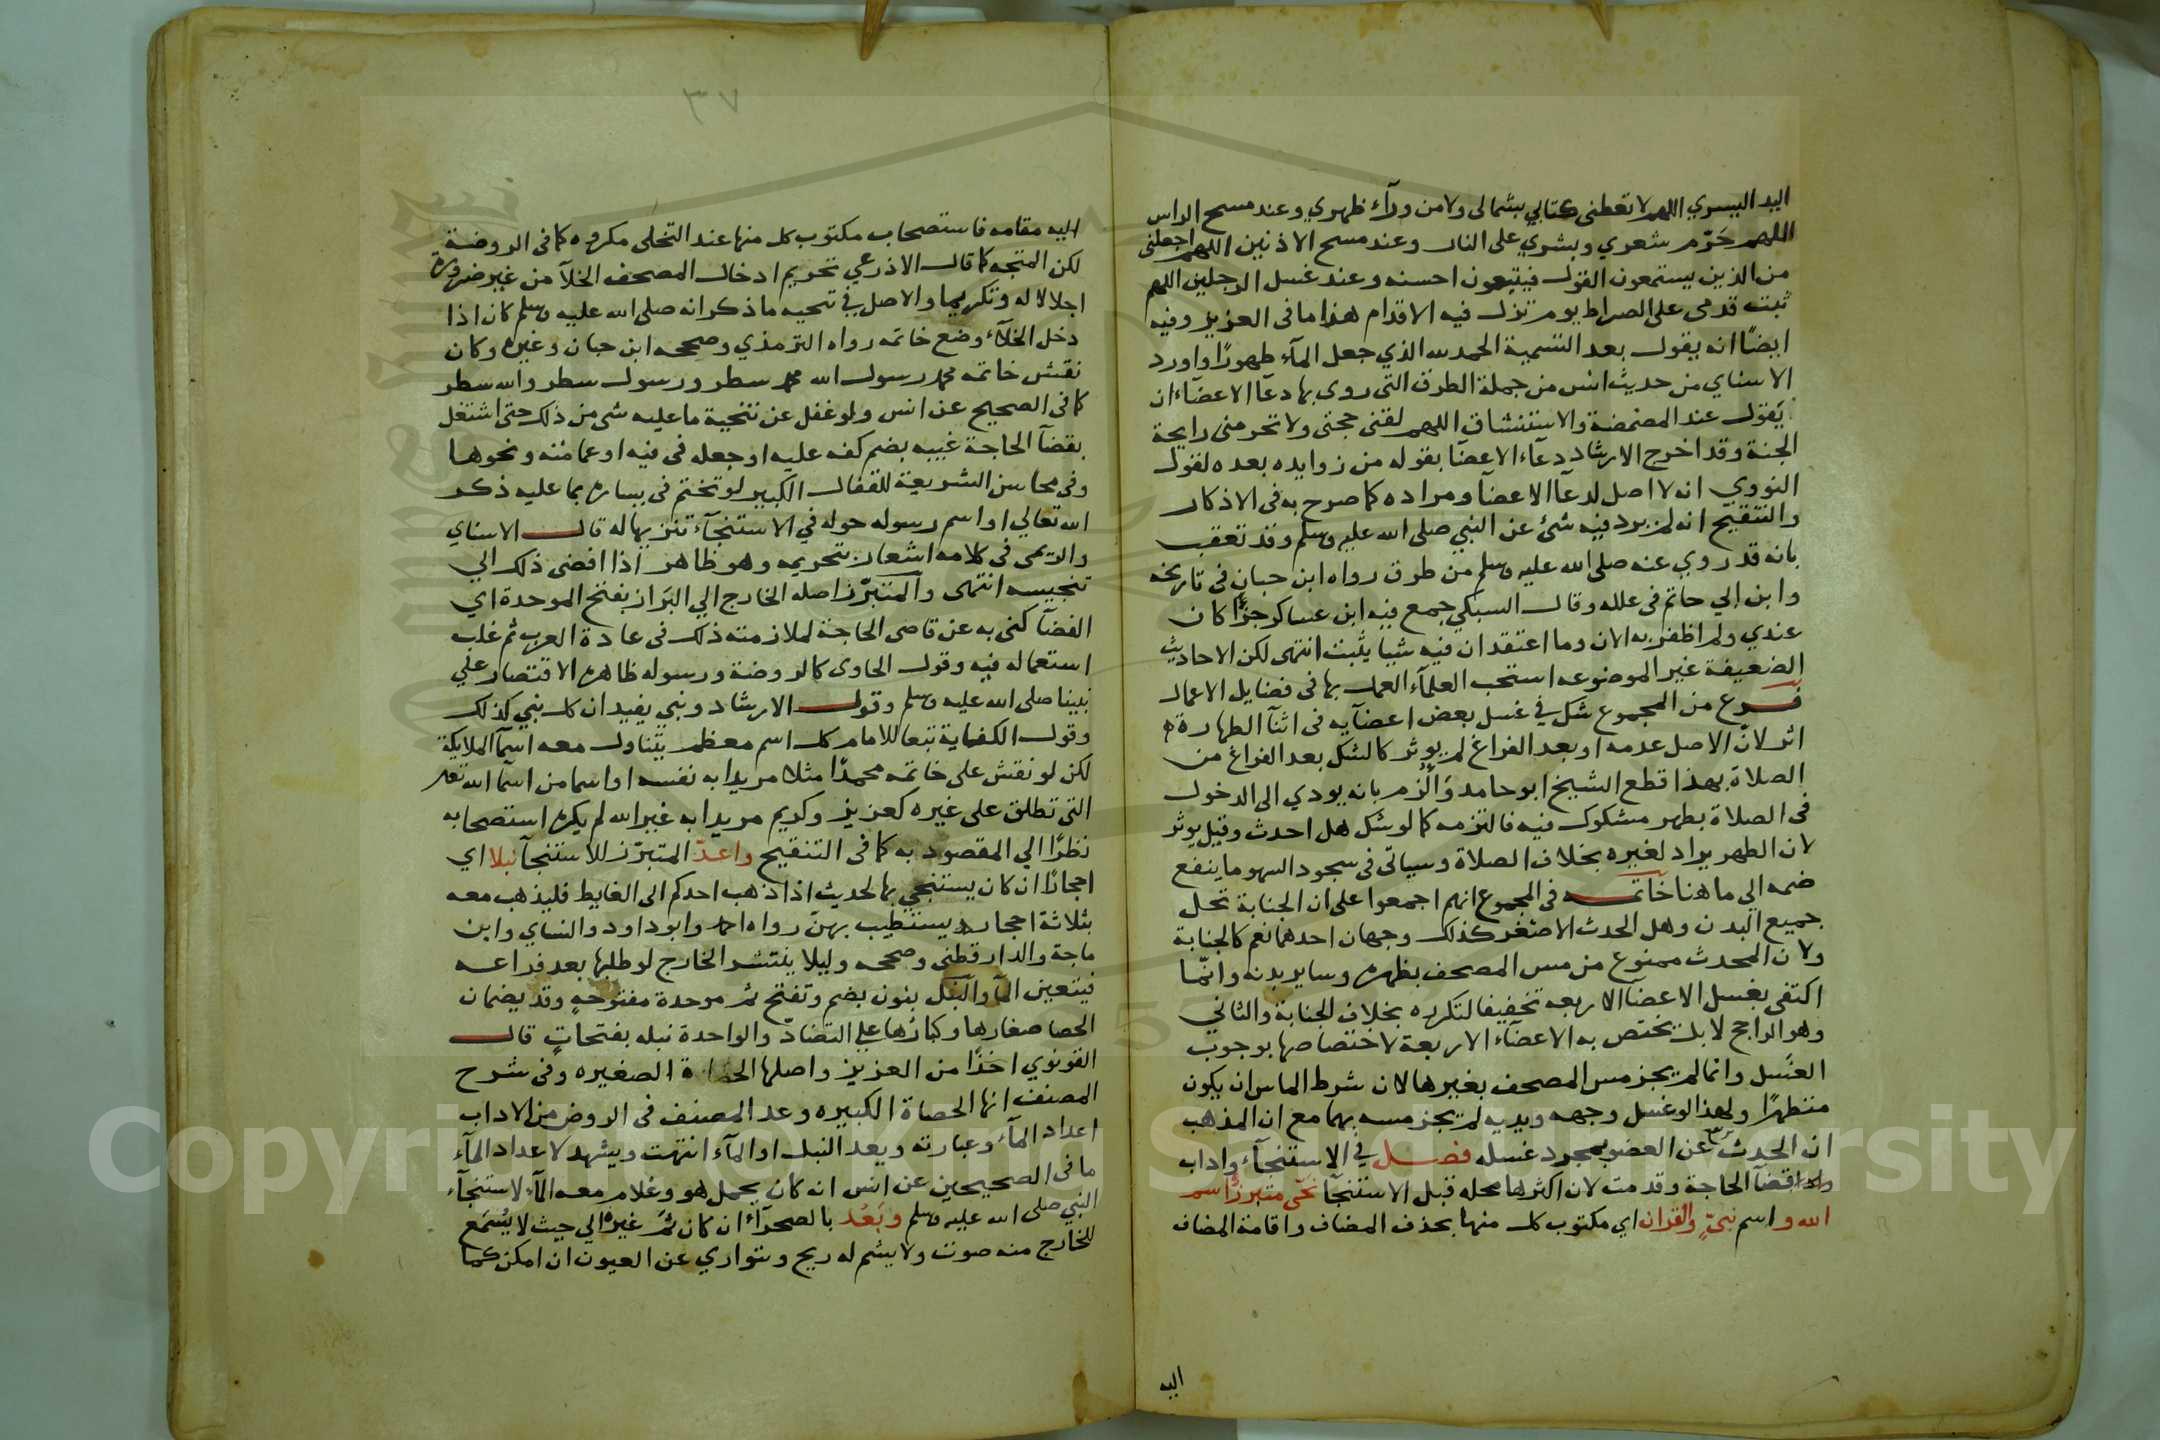 اليد اليسري اللهم لا تعطني كتابي بشمالي ولا من ورآء ظهري وعند مسح الراس
اللهم حَرّم شعري وبشري على النار وعند مسح الاذنين اللهم اجعلني
من الذين يستمعون القول فيتبعون احسنه وعند غسل الرجلين اللهم
ثبت قدمي على الصراط يوم تزل فيه الاقدام هذا ما في العزيز وفيه
ايضًا انه يقول بعد التسمية الحمد لله الذي جعل المآء طهورًا واورد
الاسناي من حديث انس من جملة الطرق التي روى بها دعآ الاعضآء ان
يَقول عند المضمضة والاستنشاق اللهم لقني حجتي ولا تحرمني رايحة
الجنة وقد اخرج الارشاد دعآء الاعضآ بقوله من زوايده بعده لقول
النووي انه لا اصل لدعآ الاعضآ ومراده كما صرح به في الاذكار
والتنقيح انه لم يرد فيه شئ عن النبي صلى الله عليه وسلم وقد تعقب
بانه قد روي عنه صلى الله عليه وسلم من طرق رواه ابن حبان في تاريخه
وابن ابي حاتم في علله وقال السبكي جمع فيه ابن عساكر جزًا كان
عندي ولم اظفر به الان وما اعتقد ان فيه شيا يثبت انتهى لكن الاحاديث
الضعيفة غير الموضوعه استحب العلمآء العمل بها في فضايل الاعمال
فرع من المجموع شك في غسل بعض اعضآيه في اثنآ الطهارة
اثر لانّ الاصل عدمه او بعد الفراغ لم يوثر كالشك بعد الفراغ من
الصلاة بهذا قطع الشيخ ابو حامد وَالزم بانه يودي الى الدخول
في الصلاة بطهر مشكوك فيه فالتزمه كما لو شك هل احدث وقيل يوثر
لان الطهر يراد لغيره بخلاف الصلاة وسياتى في سجود السهو ما ينفع
ضمه الي ما هنا خاتمه في المجموع انهم اجمعوا على ان الجنابة تحل
جميع البدن وهل الحدث الاصغر كذلك وجهان احدهما نعم كالجنابة
ولان المحدث ممنوع من مس المصحف بظهره وساير بدنه وانّما
اكتفى بغسل الاعضآ الاربعه تخفيفا لتكرره بخلاف الجنابة والثاني
وهو الراجح لا بل يختص به الاعضآء الاربعة لاختصاصها بوجوب
الغسل وانما لم يجز مس المصحف بغيرها لان شرط الماس ان يكون
متطهرًا ولهذا لو غسل وجهه ويديه لم يجز مسه بهما مع ان المذهب
ان الحدث عن العضو بمجرد غسله فصل في الاستنجآء واداب
قضآ الحاجة وقدمت لان اكثرها محله قبل الاستنجآ نحّى متبرزٌ اسم
الله واسم نبيّ والقران اي مكتوب كل منها بحذف المضاف واقامة المضاف
اليه
٣٧
اليه مقامه فاستصحاب مكتوب كل منها عند التخلى مكروه كما في الروضة
لكن المتجه كما قال الاذرعي تحريم ادخال المصحف الخلآ من غير ضرورة
اجلالا له وتكريما والاصل في تنحيه ما ذكر انه صلى الله عليه وسلم كان اذا
دخل الخلآء وضع خاتمه رواه الترمذي وصححه ابن حبان وغيره وكان
نقش خاتمه محمد رسول الله محمد سطر ورسول سطر والله سطر
كما في الصحيح عن انس ولو غفل عن تنحية ما عليه شى من ذلك حتى اشتغل
بقضآ الحاجة غيبه بضم كفه عليه او جعله في فيه او عمامته ونحوها
وفي محاسن الشريعة للقفال الكبير لو تختم في يساره بما عليه ذكر
الله تعالي او اسم رسوله حوله في الاستنجآء تنزيها له قال الاسناي
والزيمى في كلامه اشعار بتحريمه وهو ظاهر اذا افضى ذلك الي
تنجيسه انتهى والمتبرّز اصله الخارج الي البَراز بفتح الموحدة اي
الفضآ كنى به عن قاضى الحاجة لملازمته ذلك في عادة العرب ثم غلب
استعماله فيه وقول الحاوى كالروضة ورسوله ظاهره الاقتصار علي
نبينا صلى الله عليه وسلم وقول الارشاد ونبي يفيد ان كل نبي كذلك
وقول الكفاية تبعا للامام كل اسم معظم يتناول معه اسمآ الملايكة
لكن لو نقش على خاتمه محمدًا مثلا مريدا به نفسه او اسما من اسمآ الله تعلى
التى تطلق على غيره كعزيز وكريم مريدا به غير الله لم يكره استصحابه
نظرًا الي المقصود به كما في التنقيح واعدّ المتبرّز للاستنجآ نبلا اي
احجارًا ان كان يستنجي بها لحديث اذا ذهب احدكم الى الغايط فليذهب معه
بثلاثة احجار يستطيب بهنّ رواه احمد وابو داود والنساي وابن
ماجة والدارقطنى وصححه وليلا ينتشر الخارج لو طلبها بعد فراعه
فيتعين المآ والنبل بنون بضم وتفتح ثم موحدة مفتوحه وقد يضمان
الحصا صغارها وكبارها علي التضادّ والواحدة نبله بفتحاتٍ قال
القونوي اخذًا من العزيز واصلها الحصاة الصغيره وفي شرح
المصنف انها الحصاة الكبيره وعد المصنف في الروض من الاداب
اعداد المآء وعبارته ويعد النبل او المآء انتهت ويشهد لاعداد المآء
ما في الصحيحين عن انس انه كان يحمل هو وغلام معه المآء لاستنجآء
النبي صلى الله عليه وسلم وبَعُد بالصحرآء ان كان ثَمّ غيره الي حيث لا يُسْمَع
للخارج منه صوت ولا يشم له ريح وتواري عن العيون ان امكن كما
Copyright © King Saud University